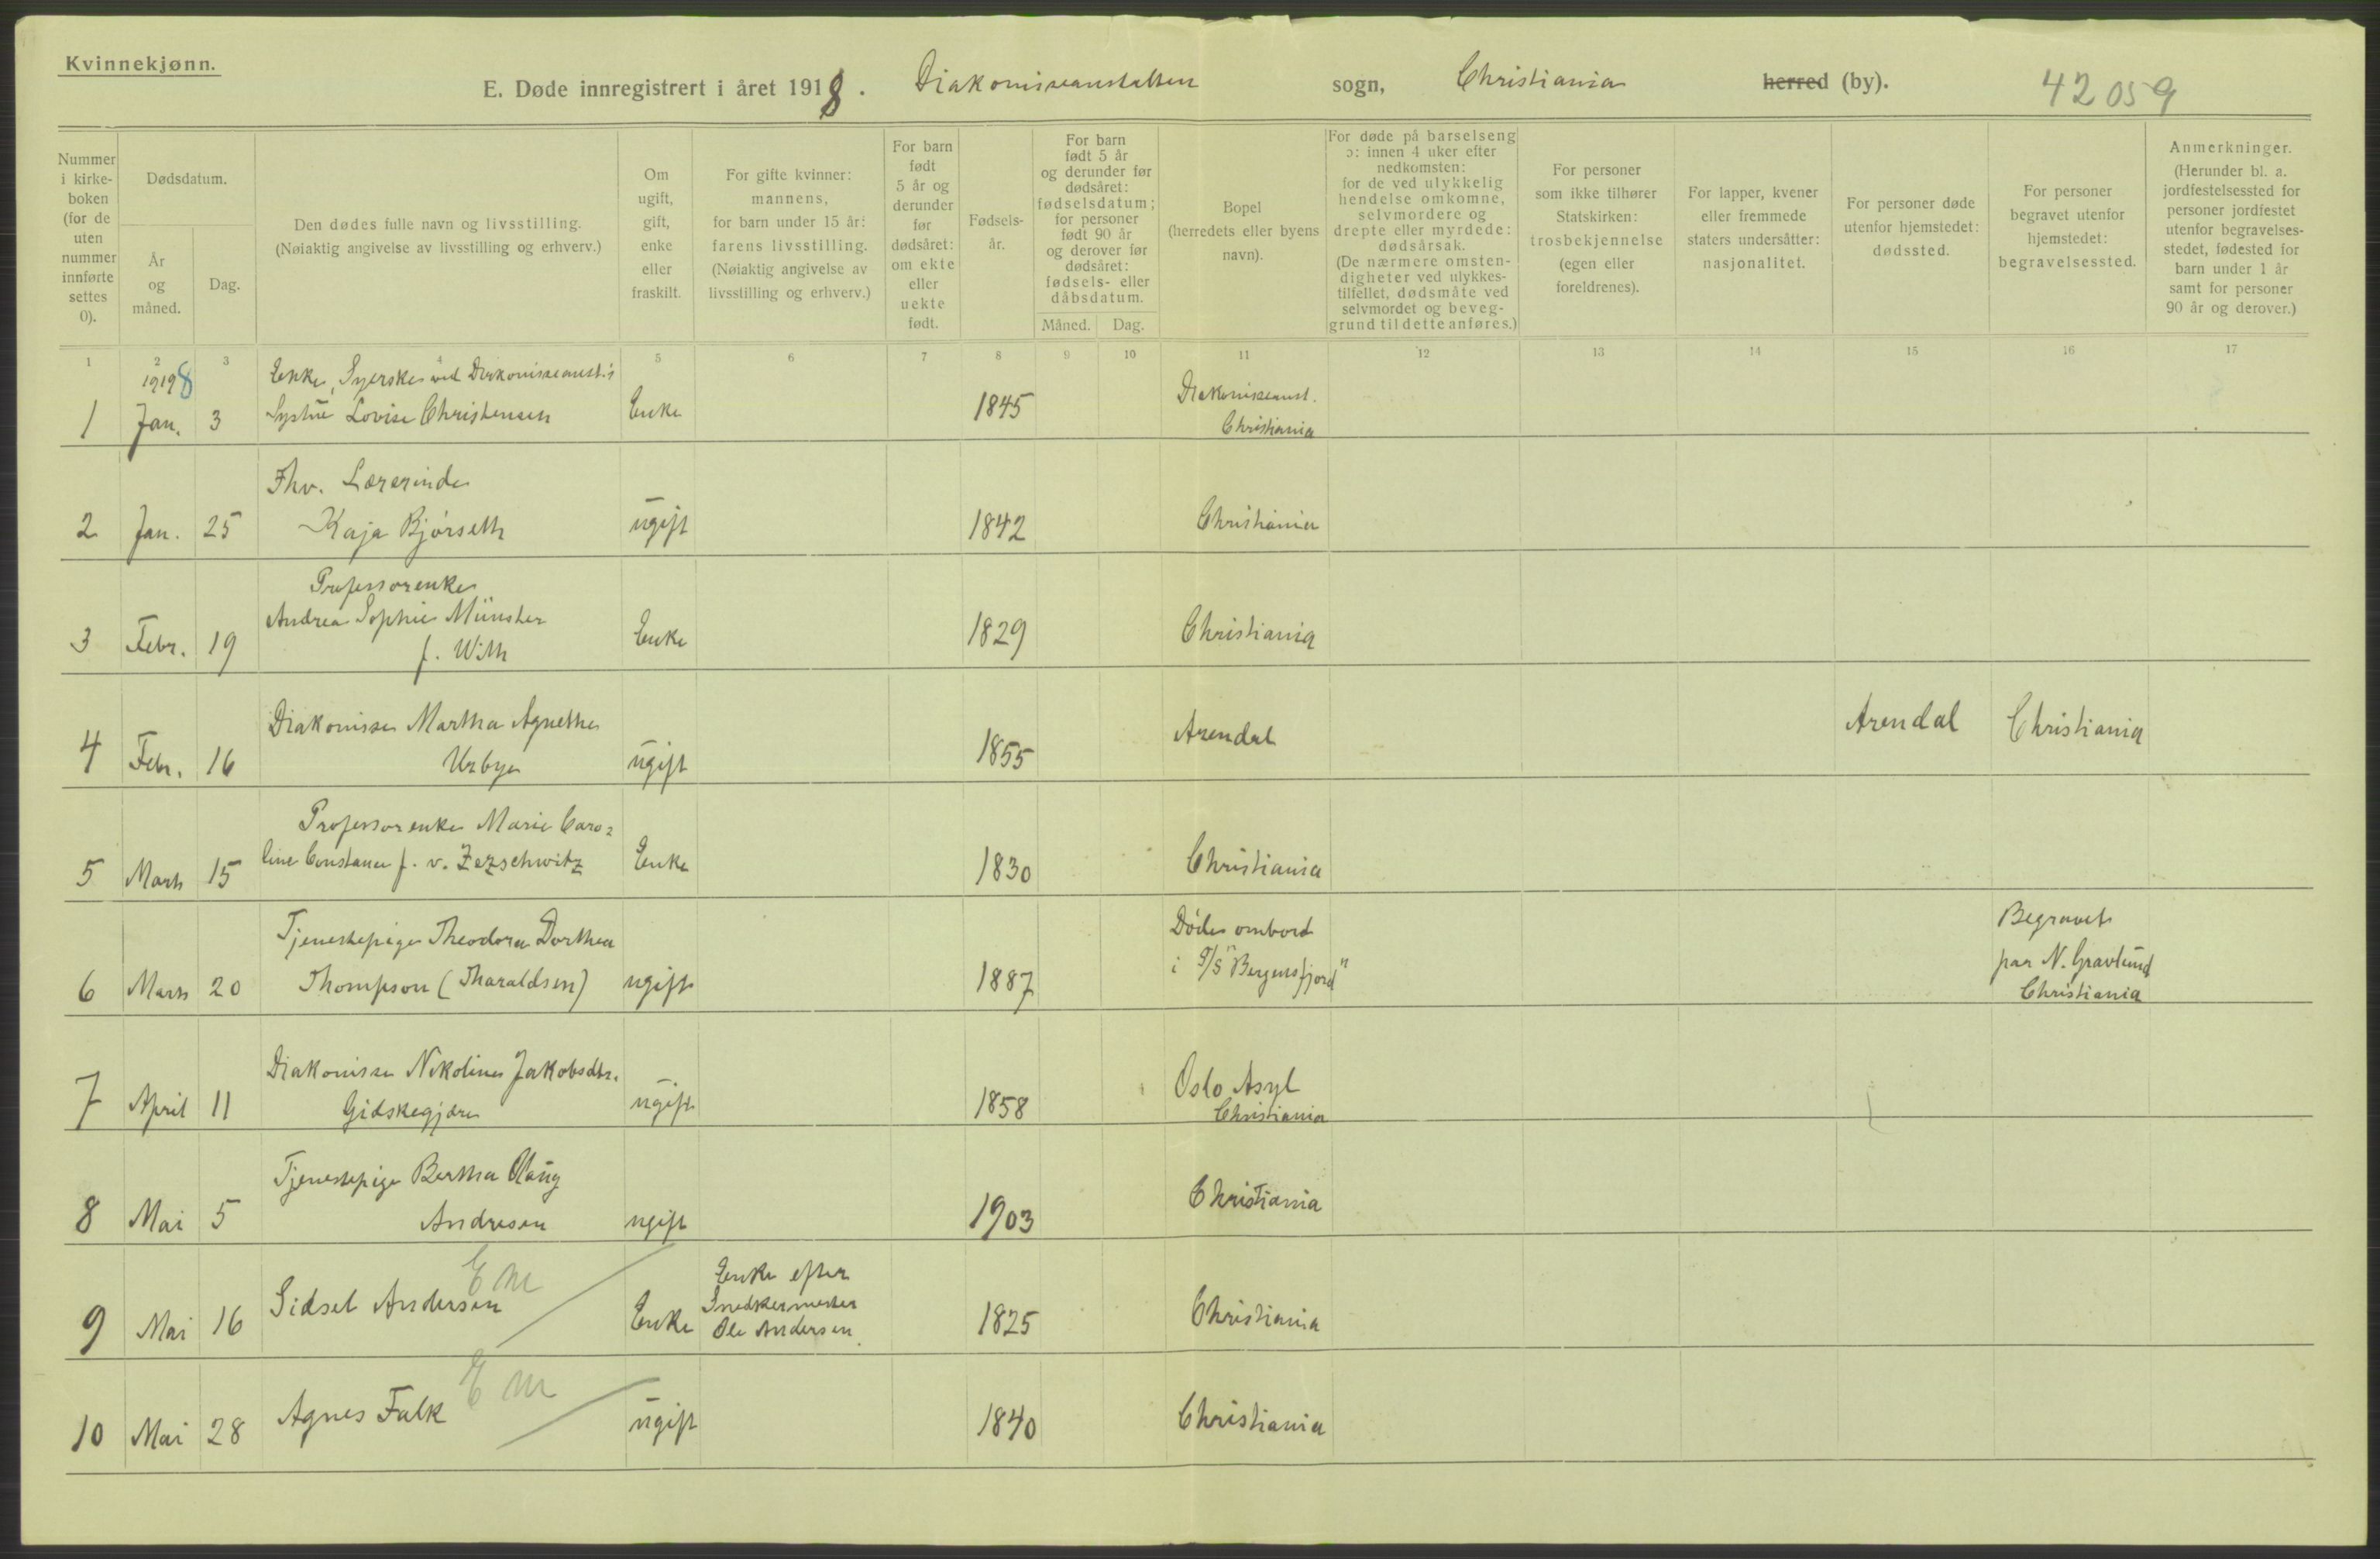 Kvinnekjønn.
E. Døde innregistrert i året 1918. Diakonisseanstalten sogn, Christiania herred (by). 42059
Nummer
i kirke-
boken
(for de
uten
nummer
innførte
settes
0).
Dødsdatum.
År
og
måned.
Dag.
Den dødes fulle navn og livsstilling.
(Nøiaktig angivelse av livsstilling og erhverv.)
Om
ugift,
gift,
enke
eller
fraskilt.
For gifte kvinner:
mannens,
for barn under 15 år:
farens livsstilling.
(Nøiaktig angivelse av
livsstilling og erhverv.)
For barn
født
5 år og
derunder
før
dødsåret:
om ekte
eller
uekte
født.
Fødsels-
år.
For barn
født 5 år
og derunder før
dødsåret:
fødselsdatum;
for personer
født 90 år
og derover før
dødsåret:
fødsels- eller
dåbsdatum.
Måned. Dag.
Bopel
(herredets eller byens
navn).
For døde på barselseng
ɔ: innen 4 uker efter
nedkomsten:
for de ved ulykkelig
hendelse omkomne,
selvmordere og
drepte eller myrdede:
dødsårsak.
(De nærmere omsten-
digheter ved ulykkes-
tilfellet, dødsmåte ved
selvmordet og beveg-
grund til dette anføres.)
For personer
som ikke tilhører
Statskirken:
trosbekjennelse
(egen eller
foreldrenes).
For lapper, kvener
eller fremmede
staters undersåtter:
nasjonalitet.
For personer døde
utenfor hjemstedet:
dødssted.
For personer
begravet utenfor
hjemstedet:
begravelsessted.
Anmerkninger.
(Herunder bl. a.
jordfestelsessted for
personer jordfestet
utenfor begravelses-
stedet, fødested for
barn under 1 år
samt for personer
90 år og derover.)
1 2 3 4 5 6 7 8 9 10 11 12 13 14 15 16 17
1918
1 Jan. 3
Enke, Syerske ved Diakonisseanst.
Lovise Christensen
Enke
1845
Diakonisseanst.
Christiania
2 Jan. 25
Fhv. Lærerinde
Kaja Bjørseth
ugift
1842
Christiania
3 Febr. 19
Professorenke
Andrea Sophie Münster
f. With
Enke
1829
Christiania
4 Febr. 16
Diakonisse Martha Agnethe
Urbye
ugift
1855
Arendal
Arendal
Christiania
5 Marts 15
Professorenke Marie Caro=
line Constance f. v. Zezschwitz
Enke
1830
Christiania
6 Marts 20
Tjenestepige Theodora Dorthea
Thompson (Tharaldsen)
ugift
1887
Døde ombord
i S/S "Bergensfjord"
Begravet
paa N. Gravlund
Christiania
7 April 11
Diakonisse Nikoline Jakobsdtr.
Gidskegjære
ugift
1858
Oslo Asyl
Christiania
8 Mai 5
Tjenestepige Bertha Olaug
Andresen
ugift
1903
Christiania
9 Mai 16
Sidsel Andersen
E m
Enke
Enke efter
Snedkermester
Ole Andersen.
1825
Christiania
10 Mai 28
Agnes Falk
E m
ugift
1840
Christiania